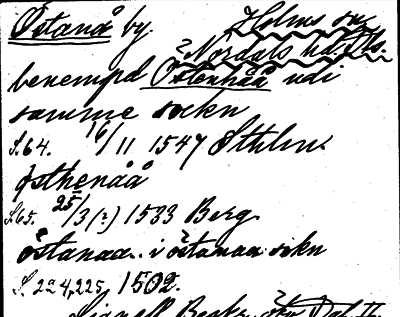 Östanå by. Holms sn
Nordals hd. Ds.
benempd Östenhåå udi
samme sockn
S. 64. 16/11 1547 Sthlm
östhenåå
S. 65. 25/3 (?) 1533 Berg
östanaa.. i östanaa sokn
S. 224, 225, 1502.